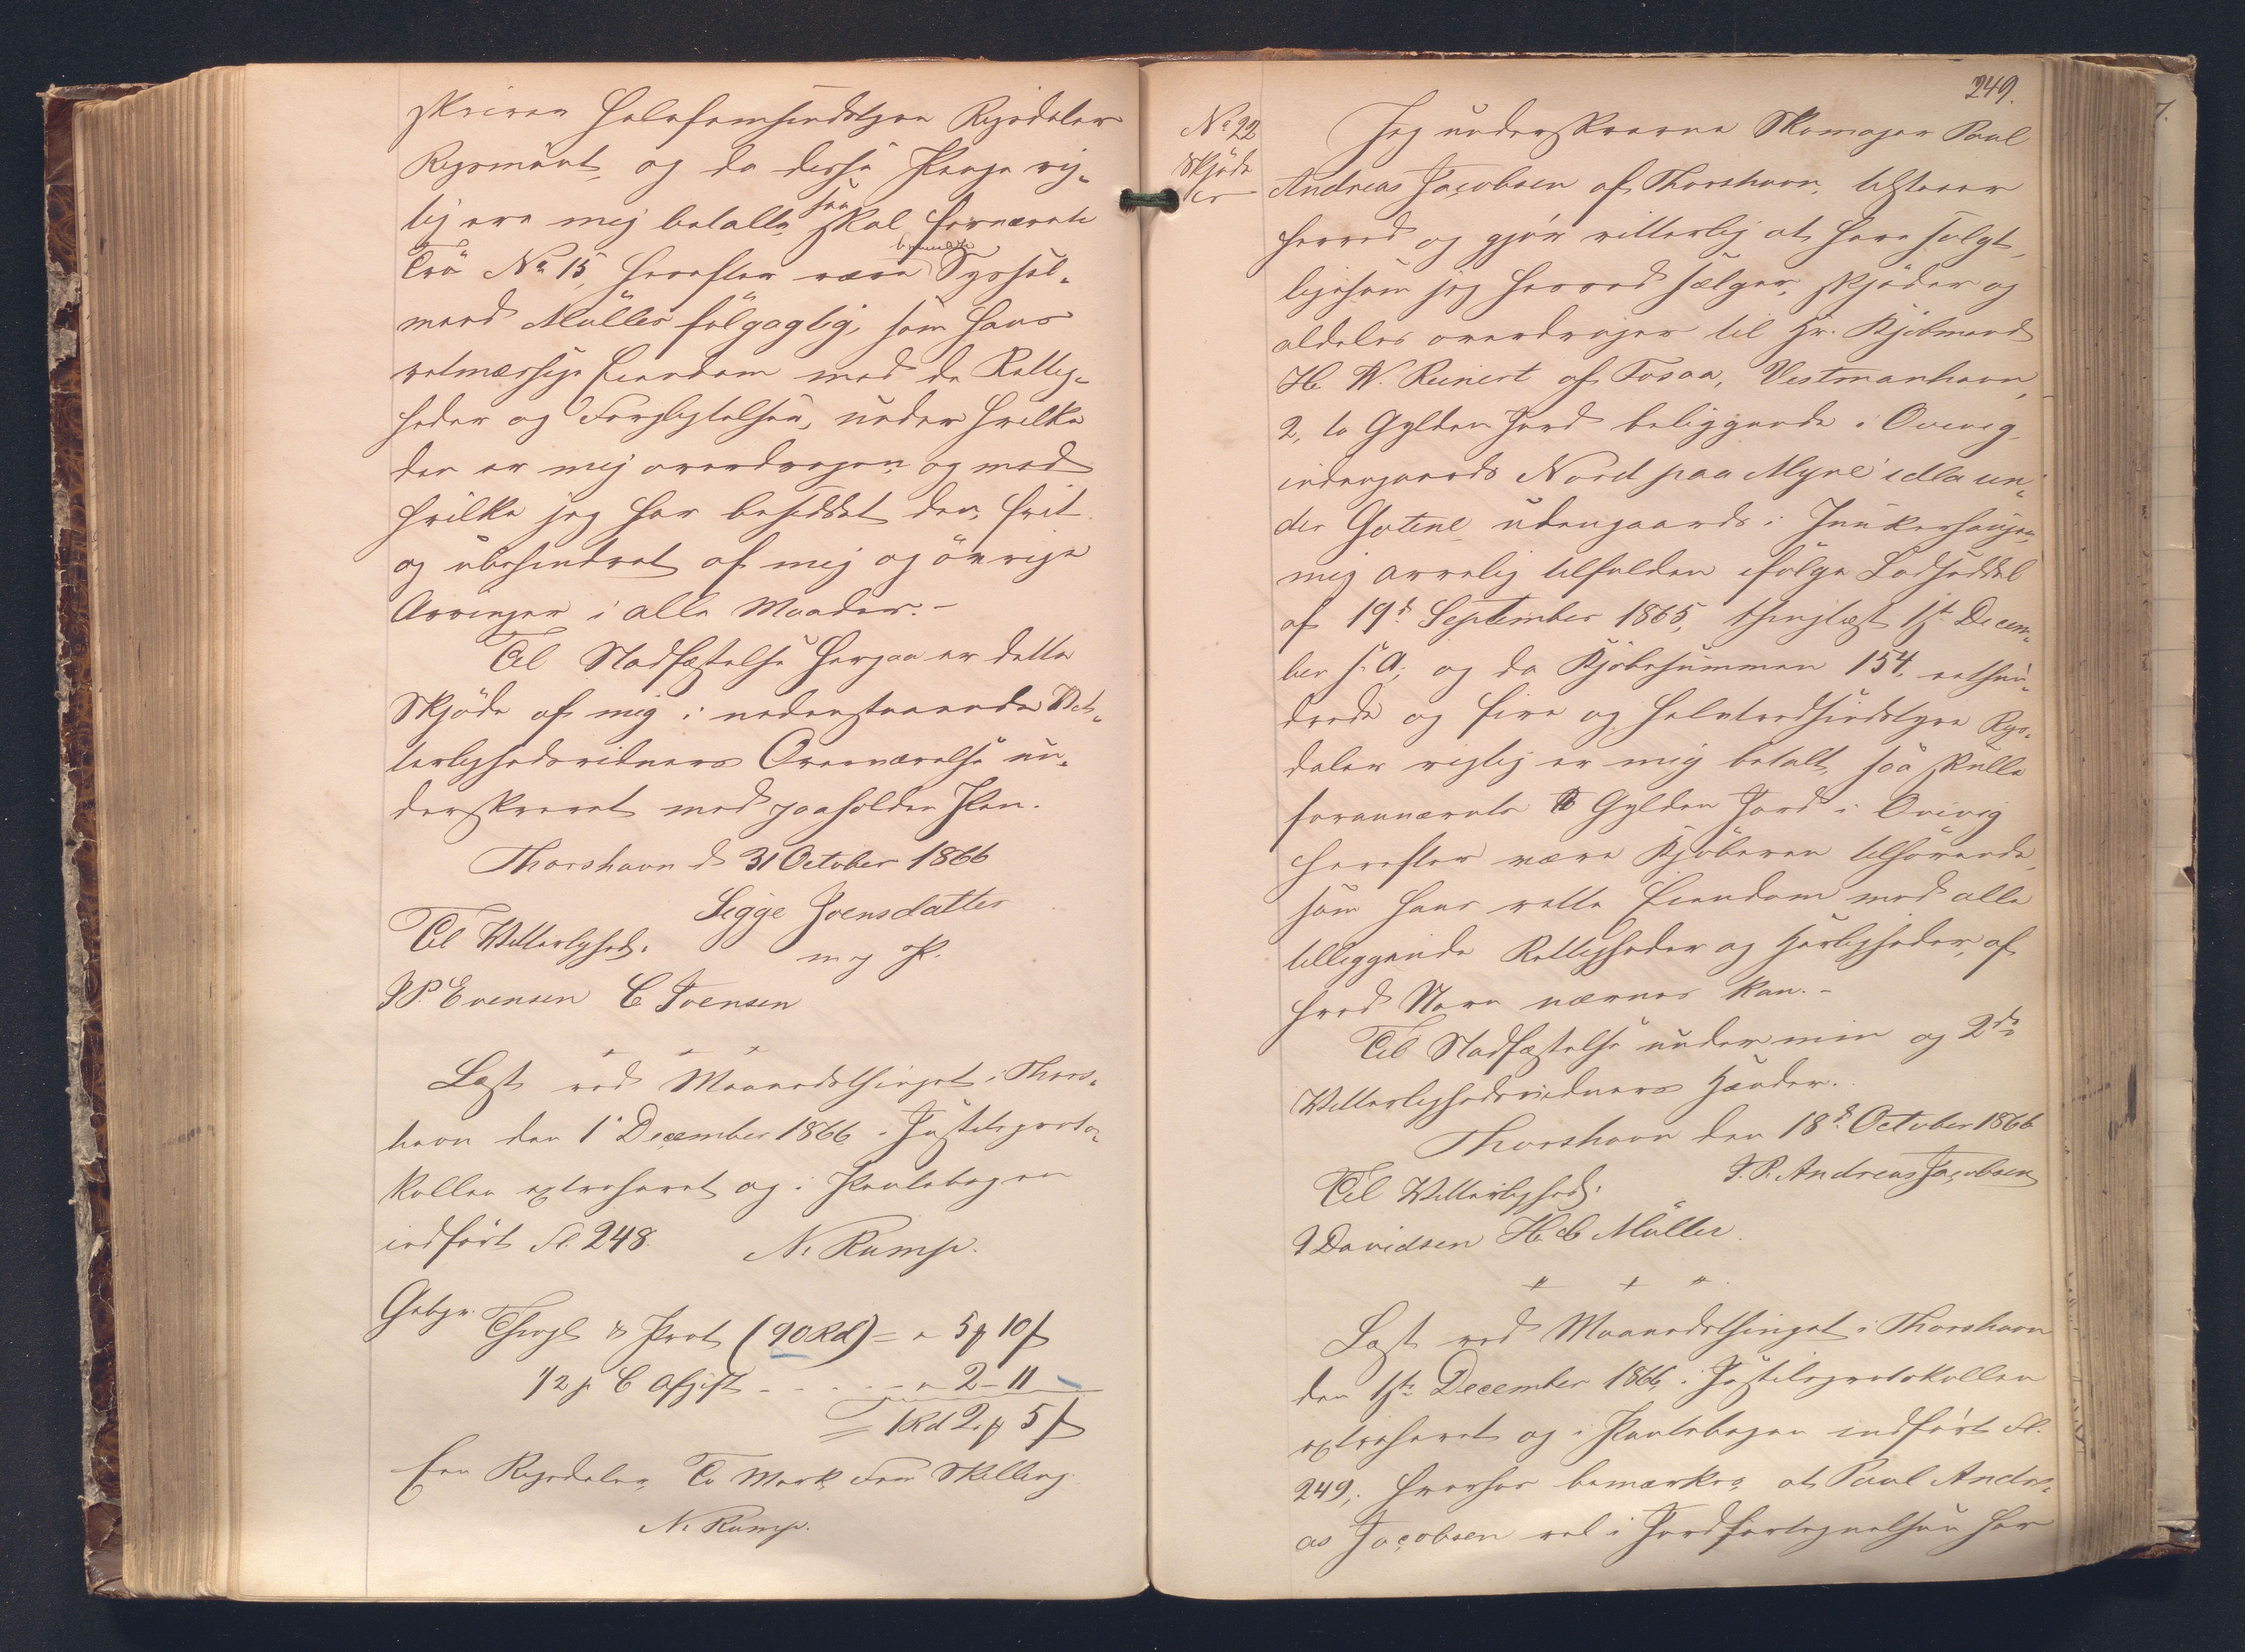 skriver Halvfemsindstyve Rigsdaler
Rigsmønt, og da disse Penge rig„
tig ere mig betalte, saa skal fornævnte
Trö No 15, herefter være bemeldte Syssel„
mand Müller følgagtig, som hans
retmæssige Eiendom med de Rettig„
heder og Forpligtelser, under hvilke
den er mig overdragen og med
hvilke jeg har besiddet den, frit
og ubehindret af mig og øvrige
Arvinger i alle Maader.–
Til Stadfæstelse herpaa er dette
Skjöde af mig i nedenstaaende Vit„
terlighedsvidners Overværelse un„
derskrevet med paaholden Pen.
Thorshavn d 31 October 1866
Sigge Joensdatter
Til Vitterlighed:
m p P.
J P. Evensen C Joensen
Læst ved Maanedsthinget i Thors„
havn den 1' December 1866 i Justitsproto„
kollen extraheret og i Pantebogen
indført Fl. 248. N. Rump.
Gebyr. Thingl & Prot (90 Rd) = „ 5 ₰ 10 ß
1/2 p C Afgift - - - - „ 2 – 11
= 1 Rd 2 ₰ 5 ß
Een Rigsdaler, To Mark Fem Skilling.
N. Rump.
249.
No 22
Skjöde
Jeg underskrevne Skomager Paul
Andreas Jacobsen af Thorshavn, tilstaaer
herved og gjør vitterlig at have solgt,
ligesom jeg herved sælger, skjöder og
aldeles overdrager til Hr. Kjøbmand
H. W. Reinert af Fosaa, Vestmanhavn,
2, to Gylden Jord beliggende i Qvivig
indengaards Nord paa Myre idla un„
der Gotene udengaards i Junkershaugen,
mig arvelig tilfalden ifølge Lodseddel
af 19d September 1865, thinglæst 1st Decem„
ber s. A; og da Kjøbesummen 154, eethun„
drede og fire og halvtredsindstyve Rigs„
daler rigtig er mig betalt, saa skulle
forannævnte to Gylden Jord i Qvivig
herefter være Kjøberen tilhørende,
som hans rette Eiendom med alle
tilliggende Rettigheder og Herligheder, af
hvad Navn nævnes kan.–
Til Stadfæstelse under min og 2de
Vitterlighedsvidners Hænder.
Thorshavn den 18d October 1866
J. P. Andreas Jacobsen
Til Vitterlighed:
J Davidsen H. C. Müller.
Læst ved Maanedsthinget i Thorshavn
den 1ste December 1866, i Justitsprotokollen
extraheret og i Pantebogen indført Fl.
249; hvorhos bemærkes, at Paul Andre„
as Jacobsen vel i Jordfortegnelsen har